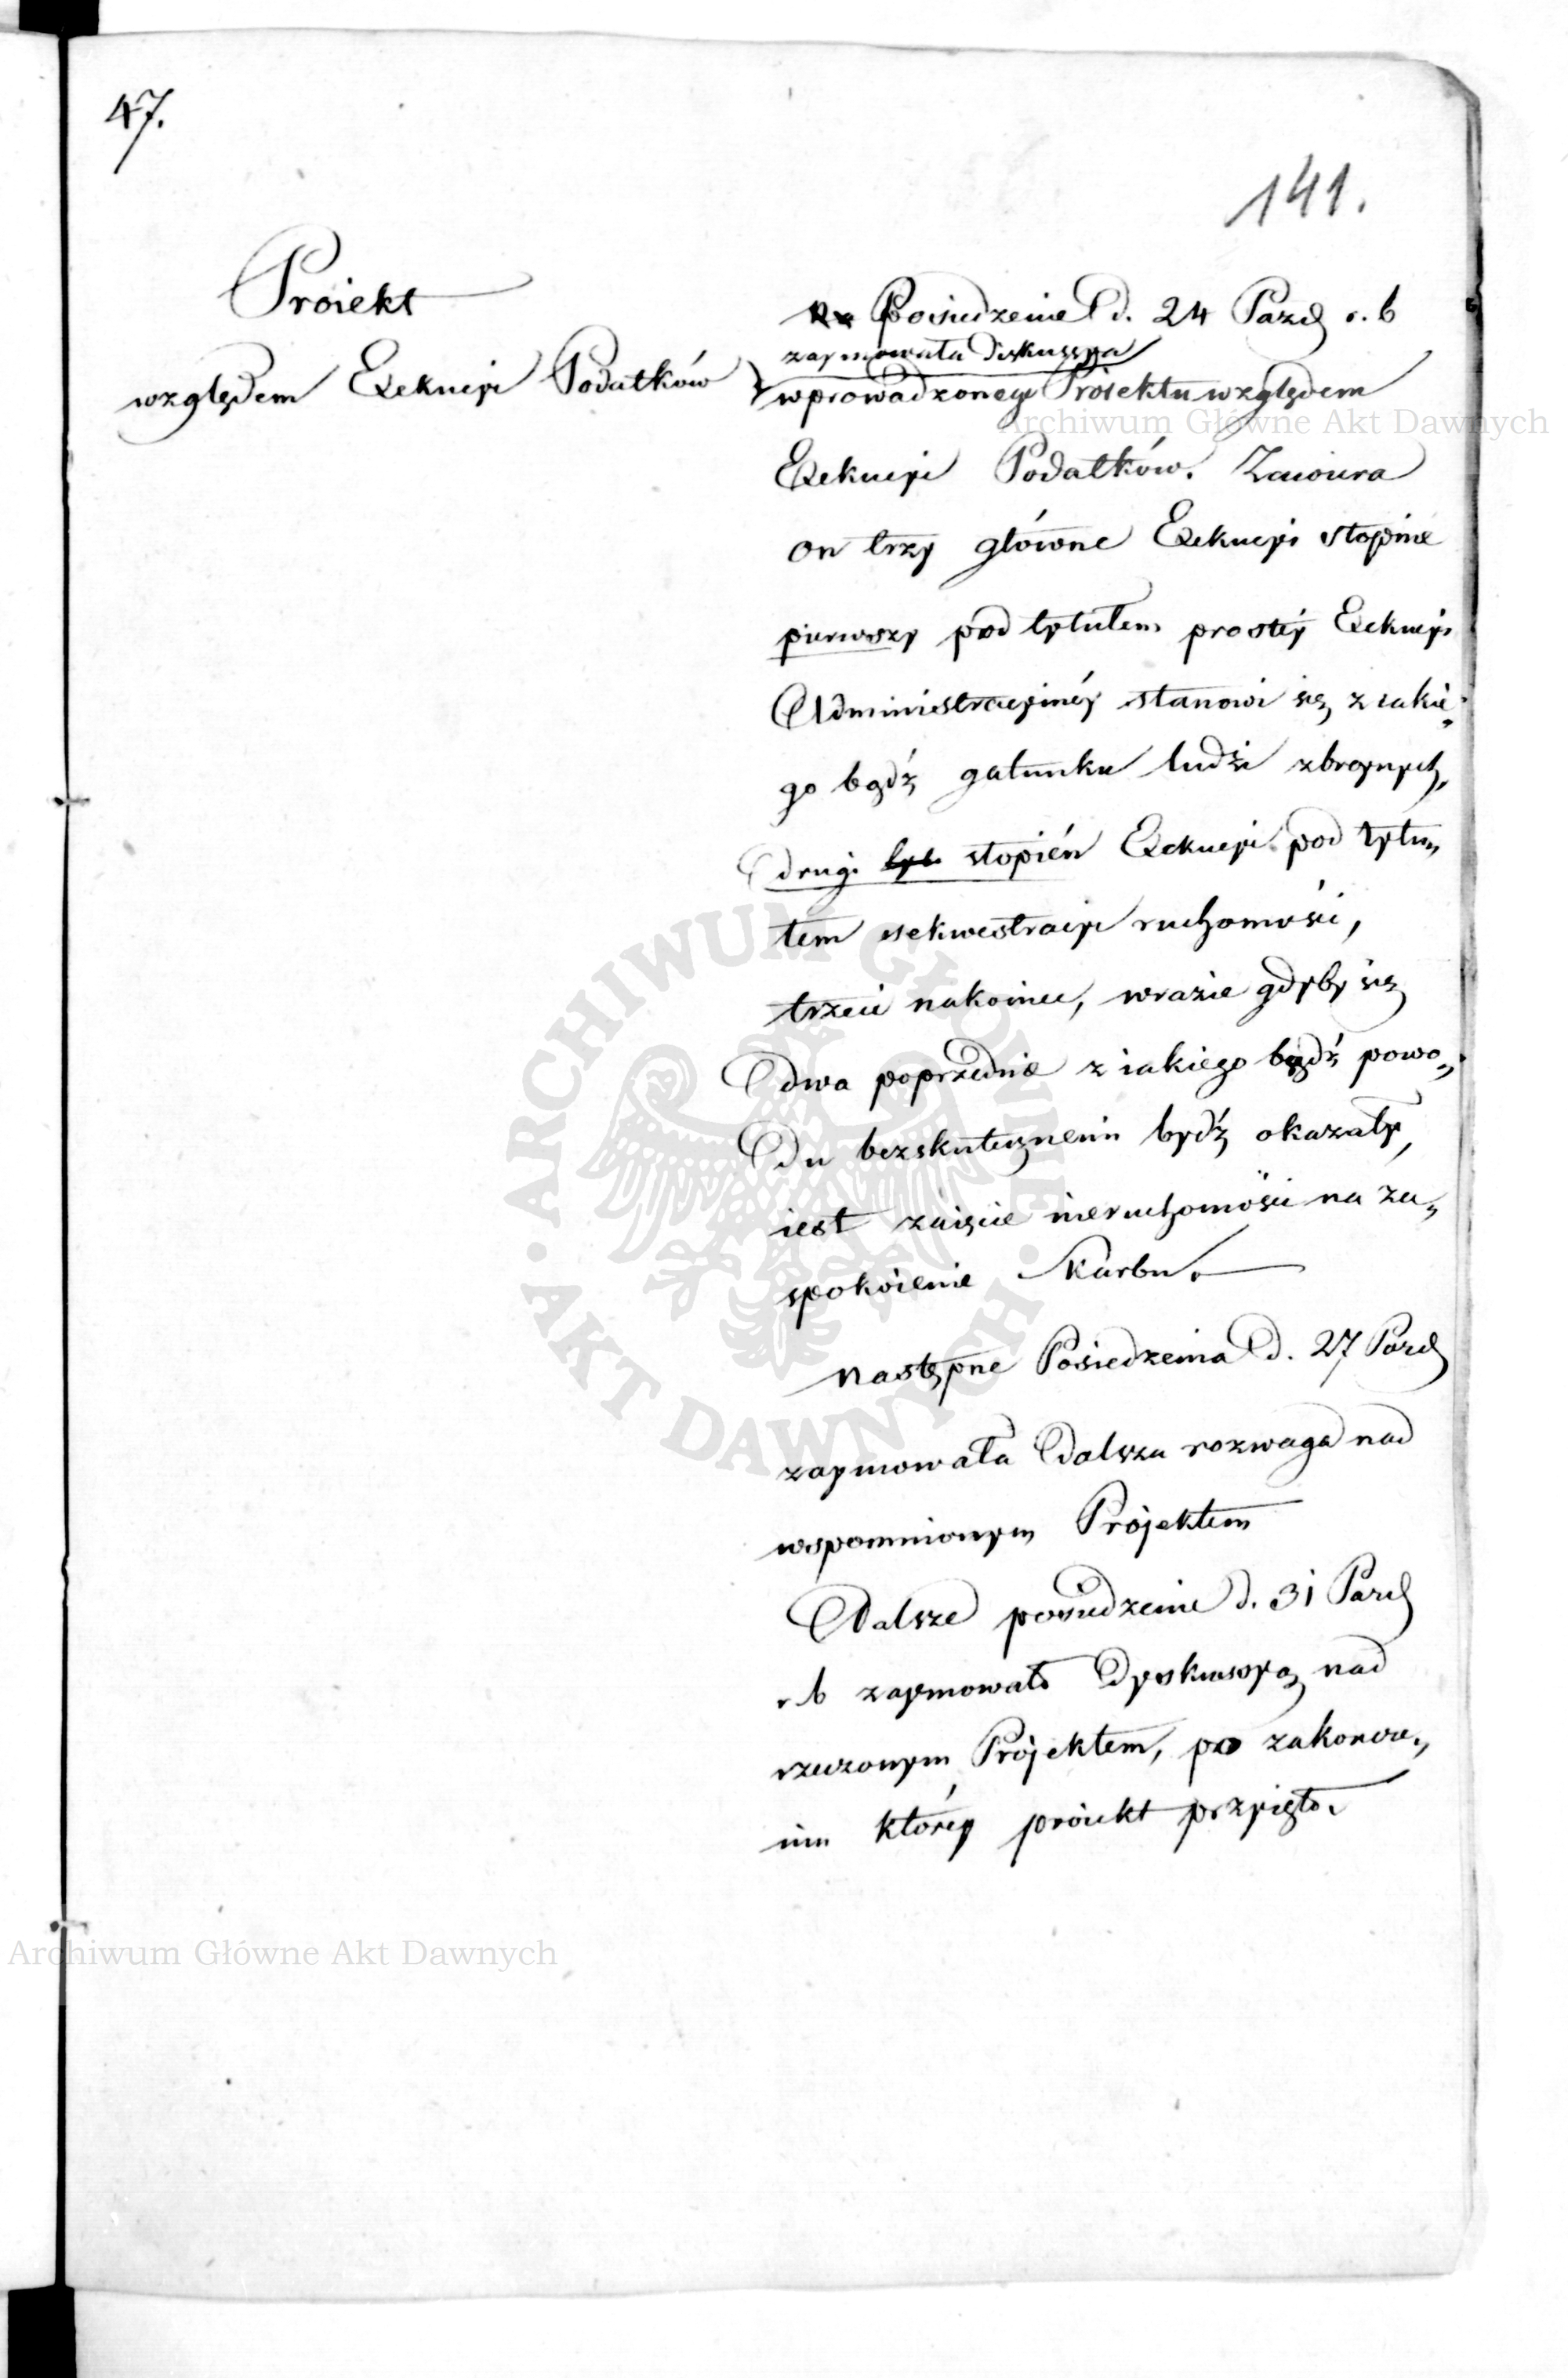 47.
141.
Proiekt
względem Exekucyi Podatków
Na Posiedzenie d. 24 Pazd r. b
zaymowała diskussya
wprowadzonego Proiektu względem
Exekucyi Podatków. Zawiera
on trzy główne Exekucyi stopnie
pierwszy pod tytułem prostéy Exekucyi
Administracyinéy stanowi się z iakie„
go bądź gatunku ludźi zbroynych,
drugi stopień Exekucyi pod tytu„
łem sekwestracyi ruchomości,
trzeci nakoniec, wrazie gdyby się
dwa poprzednie z iakiego bądź powo„
du bezskutecznemi bydź okazały,
iest zaięcie nieruchomości na za„
spokoienie Skarbu.
następne Posiedzenia d. 27 Pazd
zaymowała dalsza rozwaga nad
wspomnionym Projektem
Dalsze posiedzenie d. 31 Pazd
r b zaymowało dyskussyą nad
rzeczonym Projektem, po zakończe„
niu któréy proiekt przyięto.
Archiwum Główne Akt Dawnych
ARCHIWUM GŁÓWNE · AKT DAWNYCH ·
Archiwum Główne Akt Dawnych